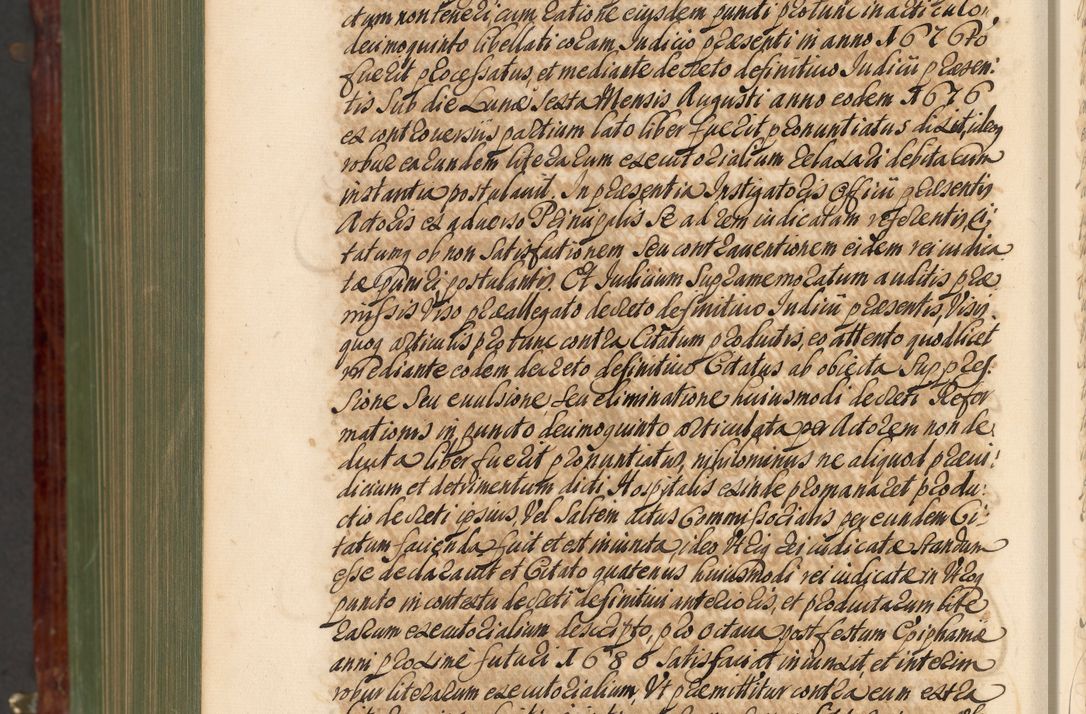 ctum non teneri, cum ratione eiusdem puncti protunc in articulo
decimoquinto libellati coram Iudicio praesenti in anno 1676to
fuerit processatus, et mediante decreto definitivo Iudicii praesen:
tis sub die Lunae sexta Mensis Augusti anno eodem 1676
ex controversiis partium lato liber fuerit pronuntiatus dixit, ideoq
robur earundem literarum executorialium relaxari debita cum
instantia postulavit. In praesentia Instigatoris Officii praesentis
Actoris ex adverso Principalis se ad rem iudicatam referentis, ci
tatumq ob non satisfactionem seu contraventionem eidem rei iudica
tae puniri postulantis. Et Iudicium Supramemoratum auditis prae
missis viso praeallegato decreto definitivo Iudicii praesentis, visisq
quoq articulis protunc contra Citatum productis, eo attento quod licet
mediante eodem decreto definitivo Citatus ab obiecta suppres
sione seu evulsione seu eliminatione huiusmodi decreti Refor
mationis in puncto decimoquinto articulata per Actorem non de
ducta liber fuerit pronuntiatus, nihilominus ne aliquod praeiu:
dicium et detrimentum dicti Hospitalis exinde promanaret produ:
ctio decreti ipsius, vel saltem actus Commissorialis per eundem Ci:
tatum facienda fuit et est iniuncta, ideo utriq rei iudicatae standum
esse declaravit et Citato quatenus huiusmodi rei iudicatae in utroq
puncto in contextu decreti definitivi anterioris, et productarum lite
rarum executorialium descripto, pro octava post festum Epiphaniae
anni proxime futuri 1680 satisfaciat iniunxit, et interim
robur literarum executorialium, ut praemittitur contra eum extra